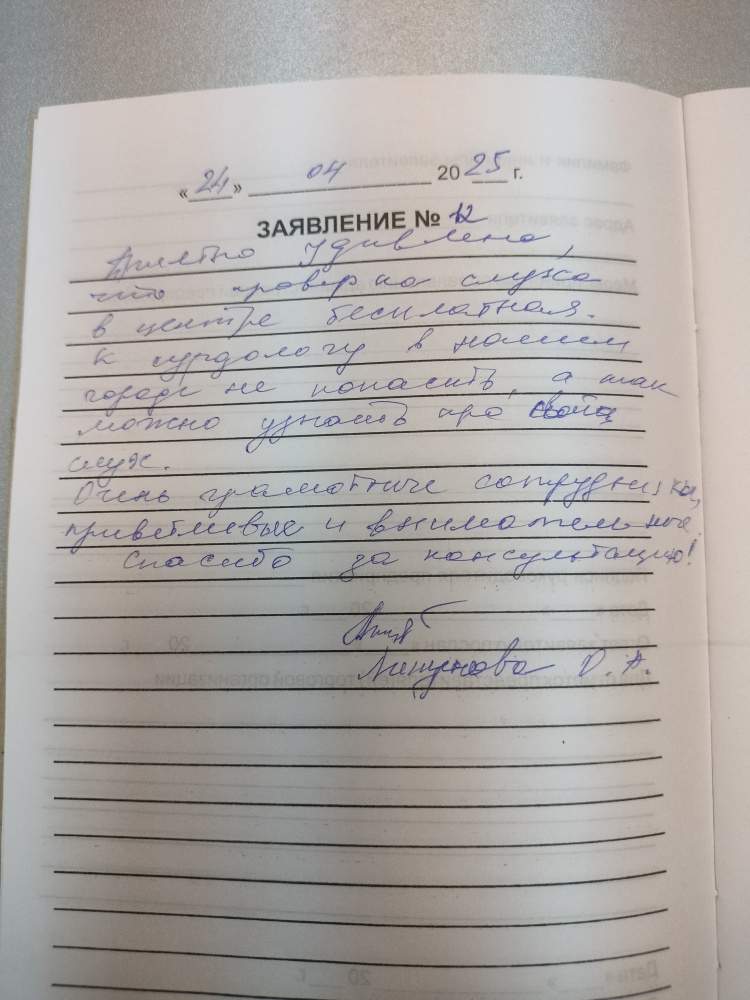 «24» 04 2025 г.
ЗАЯВЛЕНИЕ № 12
Приятно удивлена,
что проверка слуха
в центре бесплатная.
К сурдологу в нашем
городе не попасить, а так
можно узнать про свой
слух.
Очень грамотные сотрудники,
приветливые и внимательные.
Спасибо за консультацию!
Д. А.